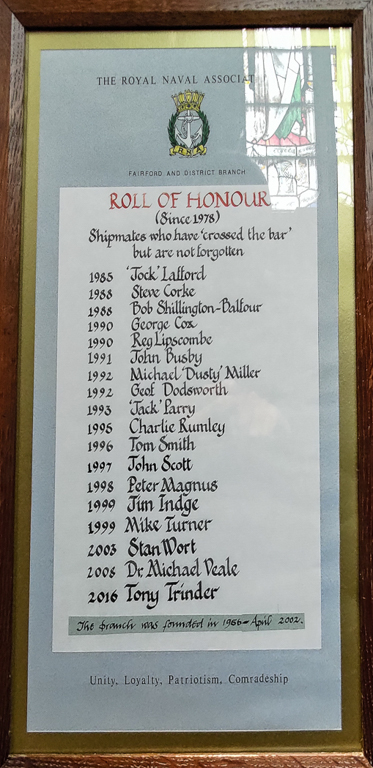 THE ROYAL NAVAL ASSOCIAT
R N A
FAIRFORD AND DISTRICT BRANCH
ROLL OF HONOUR
(Since 1978)
Shipmates who have 'crossed the bar'
but are not forgotten
1985 'Jock' Lafford
1988 Steve Corke
1988 'Bob Shillington-Balfour
1990 George Cox
1990 Reg Lipscombe
1991 John Busby
1992 Michael 'Dusty' Miller
1992 Geof Dodsworth
1993 'Jack' Parry
1995 Charlie Rumley
1996 Tom Smith
1997 John Scott
1998 Peter Magnus
1999 Jim Indge
1999 Mike Turner
2003 Stan Wort
2008 Dr. Michael Veale
2016 Tony Trinder
The branch was founded in 1986 - April 2002.
Unity, Loyalty, Patriotism, Comradeship